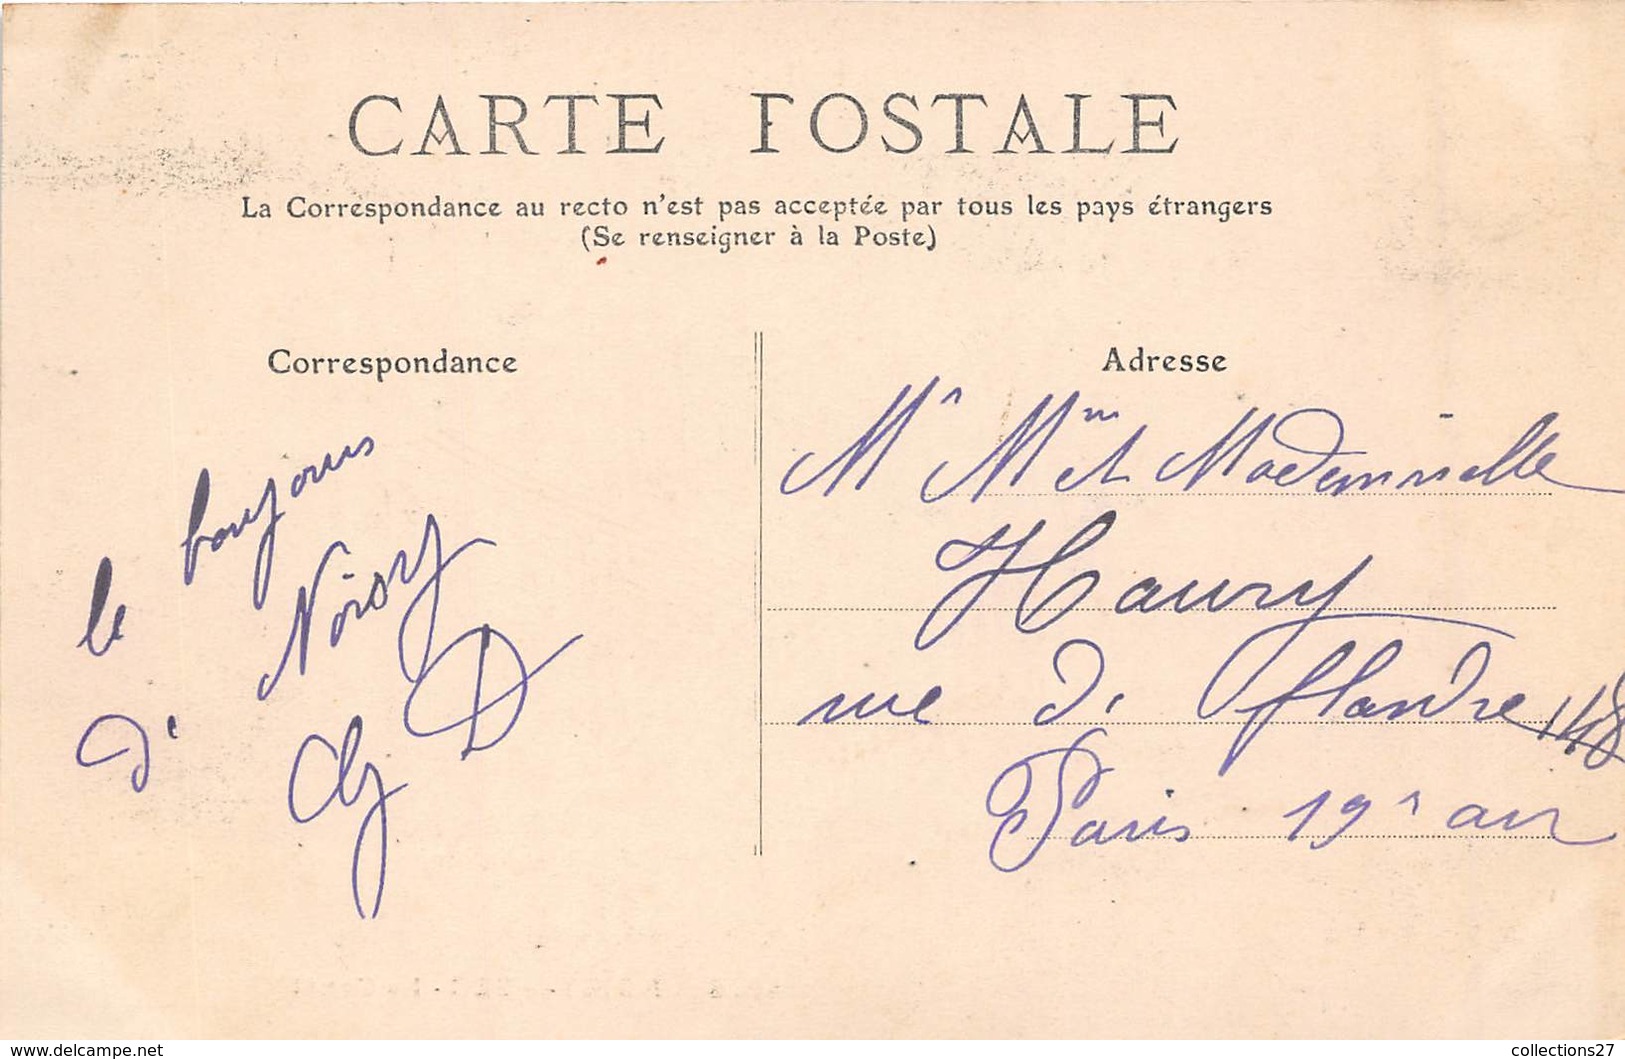 CARTE POSTALE
La Correspondance au recto n'est pas acceptée par tous les pays étrangers
(Se renseigner à la Poste)
Correspondance
le bonjour
de Noisy
D
Adresse
Mr Mme et Mademoiselle
Haury
rue de Flandre 148
Paris 19e arr
www.delcampe.net
collections27